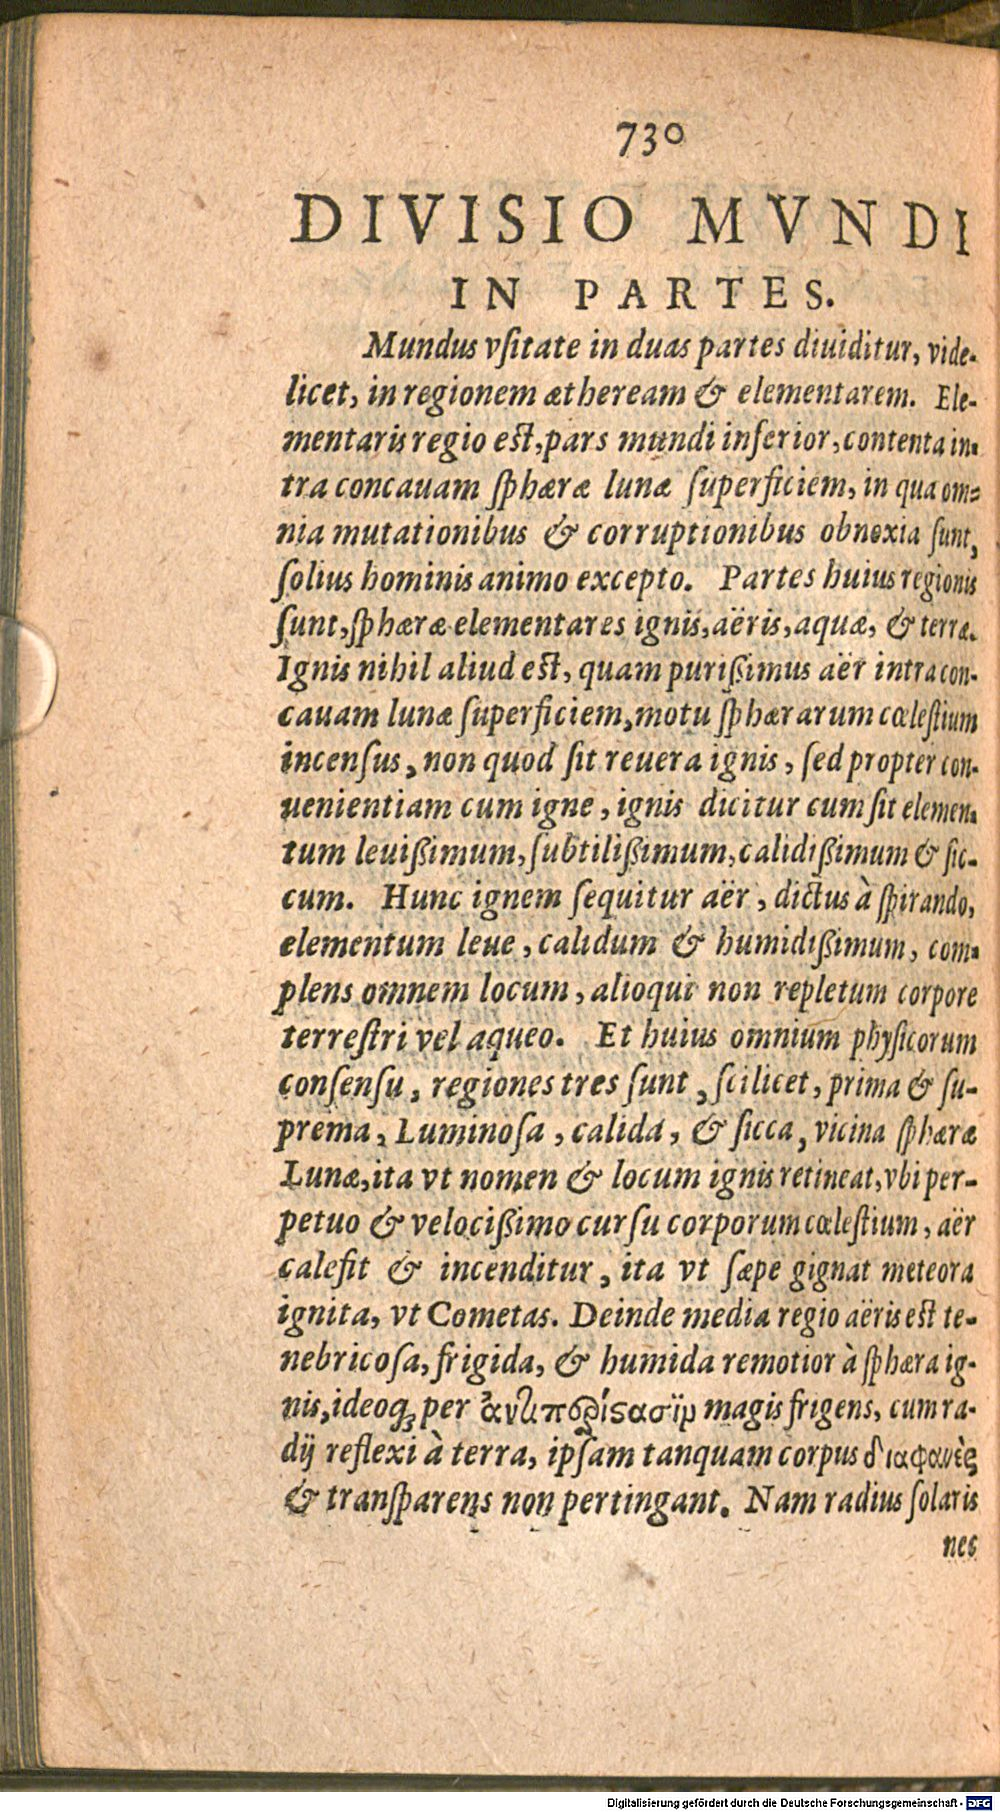 730
DIVISIO MVNDI
IN PARTES.
Mundus vſitate in duas partes diuiditur, vide-
licet, in regionem ætheream & elementarem. Ele-
mentaris regio eſt, pars mundi inferior, contenta in-
tra concauam ſphæræ lunæ ſuperficiem, in qua om-
nia mutationibus & corruptionibus obnoxia ſunt,
ſolius hominis animo excepto. Partes huius regionis
ſunt, ſphæræ elementares ignis, aëris, aquæ, & terræ.
Ignis nihil aliud eſt, quam purißimus aër intra con-
cauam lunæ ſuperficiem, motu ſphærarum cœleſtium
incenſus, non quod ſit reuera ignis, ſed propter con-
uenientiam cum igne, ignis dicitur cum ſit elemen-
tum leuißimum, ſubtilißimum, calidißimum & ſic-
cum. Hunc ignem ſequitur aër, dictus à ſpirando,
elementum leue, calidum & humidißimum, com-
plens omnem locum, alioqui non repletum corpore
terreſtri vel aqueo. Et huius omnium phyſicorum
conſenſu, regiones tres ſunt, ſcilicet, prima & ſu-
prema, Luminoſa, calida, & ſicca, vicina ſphæræ
Lunæ, ita vt nomen & locum ignis retineat, vbi per-
petuo & velocißimo curſu corporum cœleſtium, aër
calefit & incenditur, ita vt ſæpe gignat meteora
ignita, vt Cometas. Deinde media regio aëris eſt te-
nebricoſa, frigida, & humida remotior à ſphæra ig-
nis, ideoq́ꝫ per magis frigens, cum ra-
dij reflexi à terra, ipſam tanquam corpus διαφανὲς
& tranſparens non pertingant. Nam radius ſolaris
nec
Digitalisierung gefördert durch die Deutsche Forschungsgemeinschaft - DFG